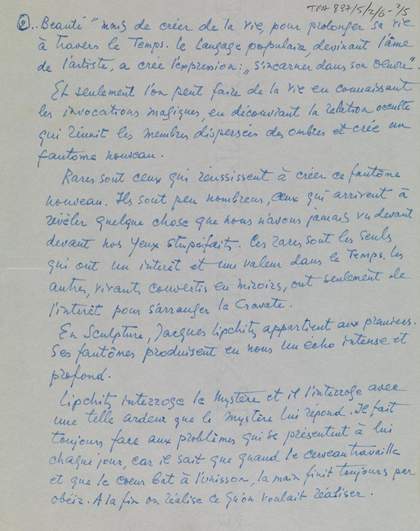 TPA 897/5/2/6-3/5
② .. Beauté" mais de créer de la vie, pour prolonger sa vie
à travers le Temps. Le langage populaire, devinant l'âme
de l'artiste, a crée l'expression: „s'incarner dans son Oeuvre"
Et seulement l'on peut faire de la vie en connaissant
les invocations magiques, en découvrant la relation occulte
qui réunit les membres dispersées des ombres et crée un
fantôme nouveau.
Rares sont ceux qui réussissent à créer ce fantôme
nouveau. Ils sont peu nombreux, ceux qui arrivent à
révéler quelque chose que nous n'avons jamais vu devant
devant nos yeux stupefaits. Ces rares sont les seuls
qui ont un interêt et une valeur dans le Temps. Les
autres, vivant, convertis en miroirs, ont seulement de
l'interêt pour s'arranger la Cravate.
En Sculpture, Jacques Lipchitz appartient aux premiers.
Ses fantômes produisent en nous un écho intense et
profond.
Lipchitz interroge le Mystère et il l'interroge avec
une telle ardeur que le mystère lui répond. Il fait
toujours face aux problèmes qui se présentent à lui
chaque jour, car il sait que quand le cerveau travaille
et que le coeur bât à l'unisson, la main finit toujours par
obéir. A la fin on réalise ce qu'on voulait réaliser.